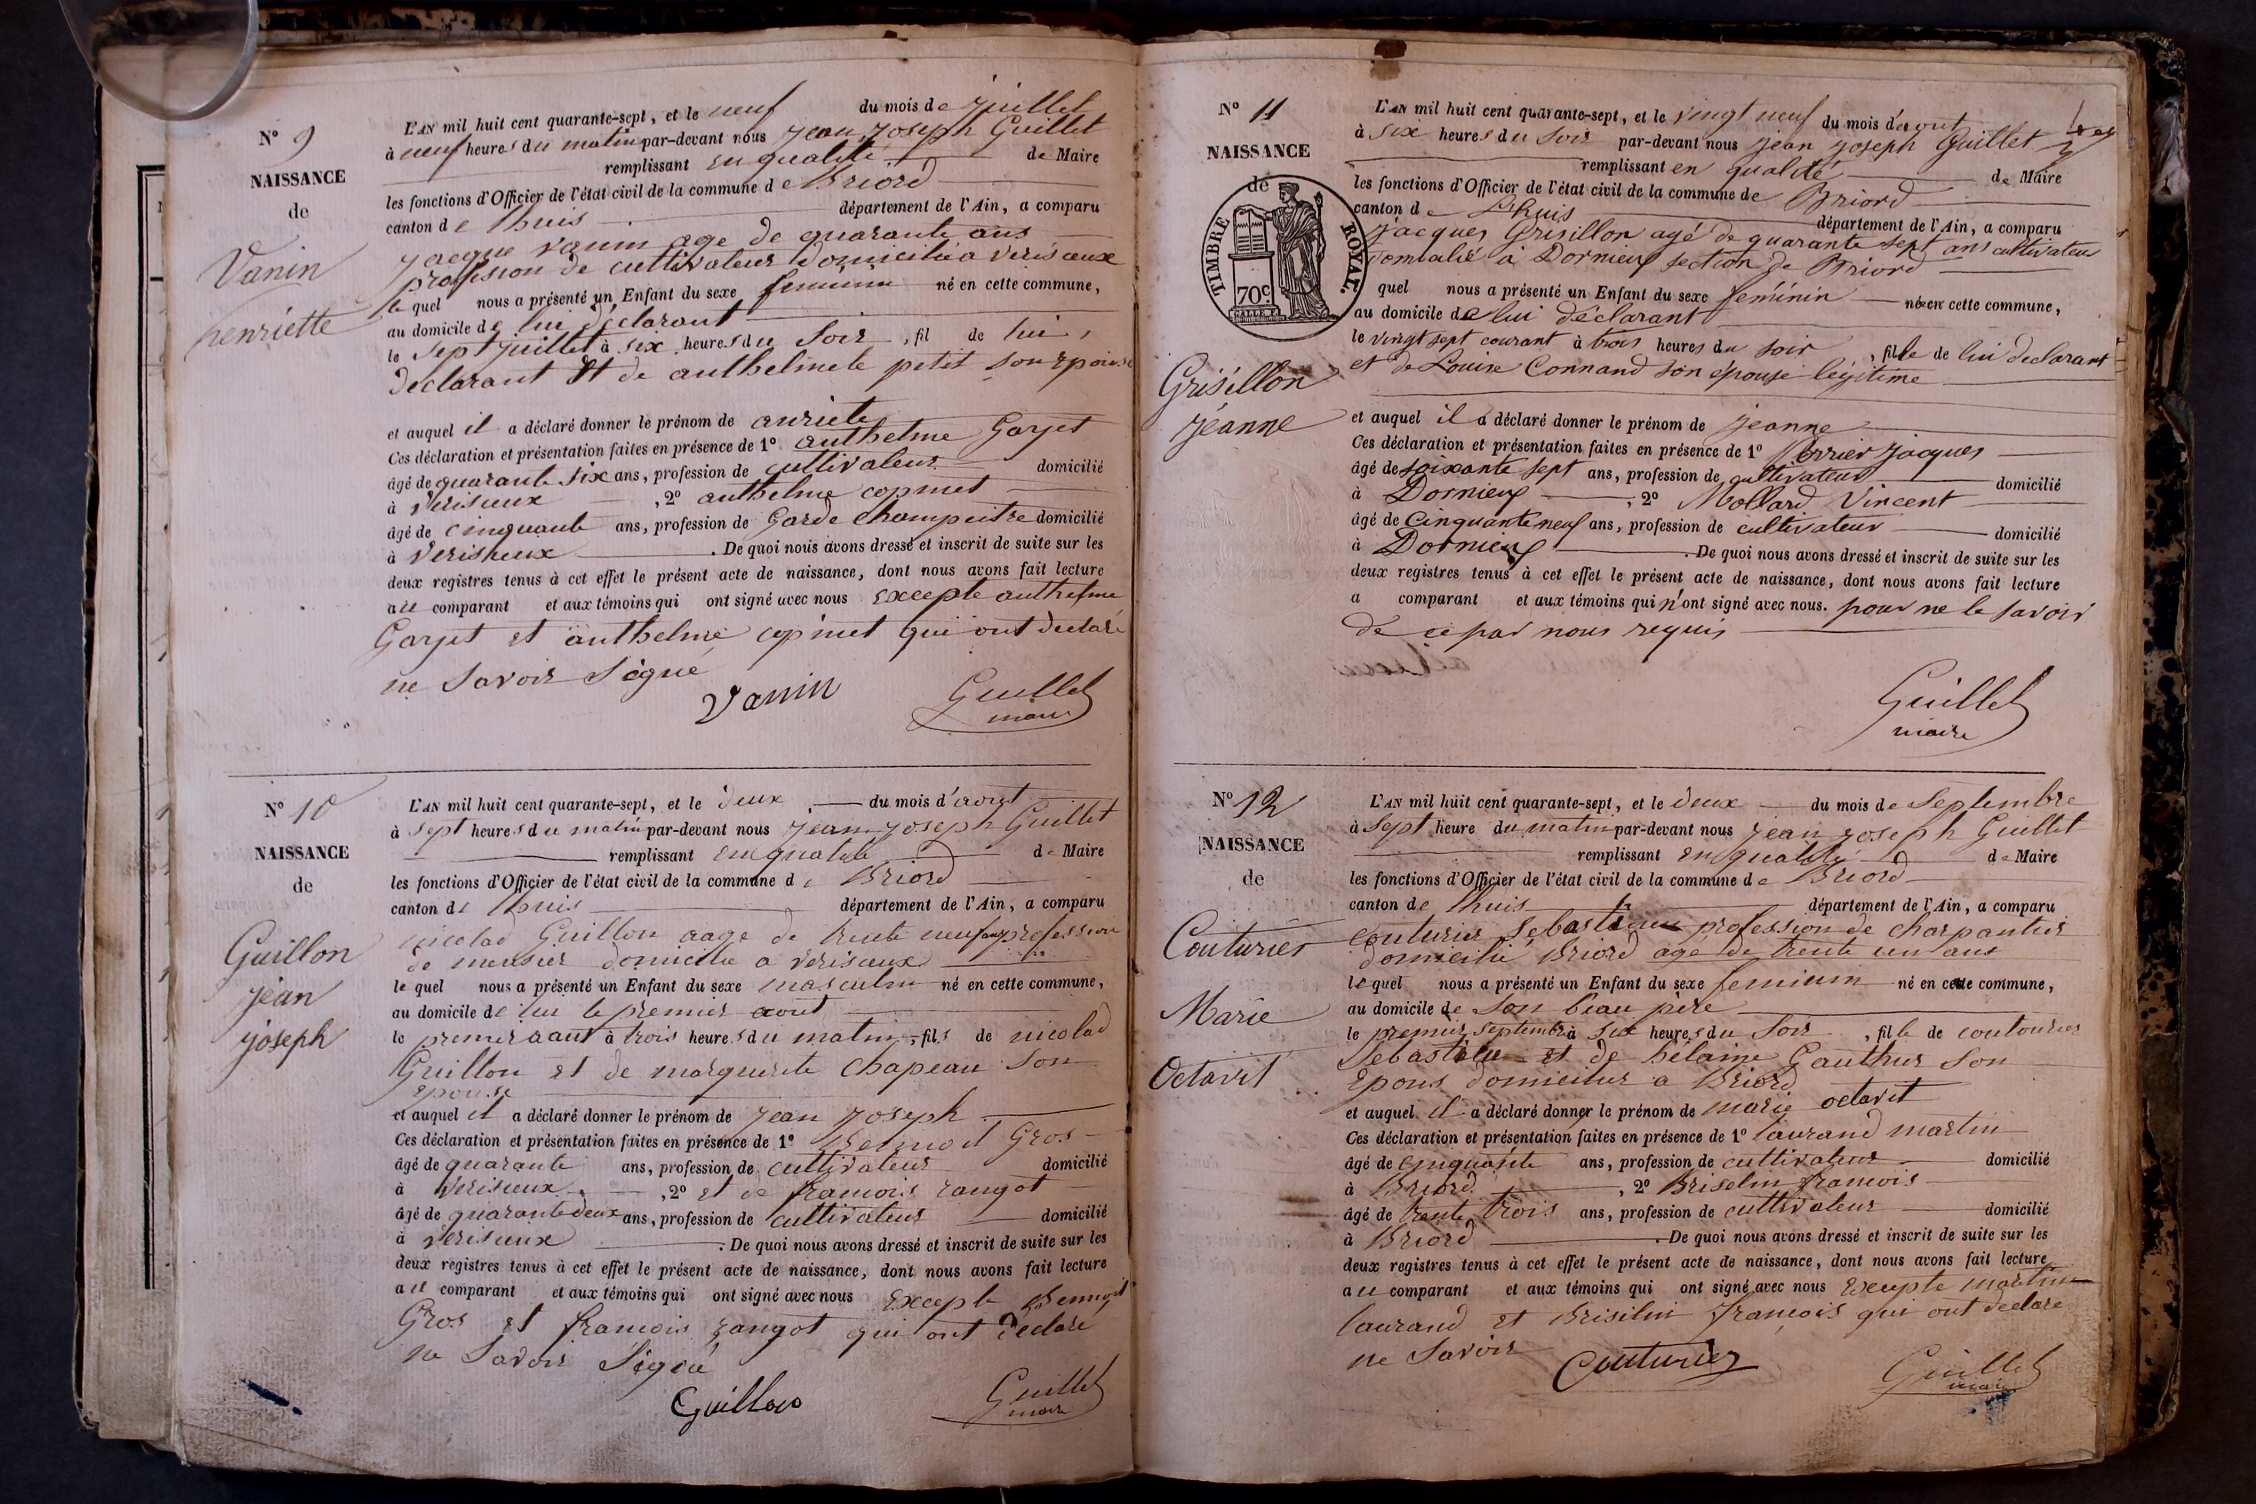 N° 9
NAISSANCE
de
Vanin
henriette
L'AN mil huit cent quarante-sept, et le neuf du mois de juillet
à neuf heures du matin par-devant nous jean joseph Guillet
remplissant en qualité de Maire
les fonctions d'Officier de l'état civil de la commune de Briord
canton de lhuis département de l'Ain, a comparu
jacque vanin age de quarante ans
profession de cultivateur domicilié a verisieux
le quel nous a présenté un Enfant du sexe feminin né en cette commune,
au domicile de lui déclarant
le sept juillet à six heures du soir, fil de lui
declarant et de anthelmete petit son epouse
et auquel il a déclaré donner le prénom de anriete
Ces déclaration et présentation faites en présence de 1° anthelme Garjet
âgé de quarante six ans, profession de cultivateur domicilié
à verisieux, 2° anthelme copinet
âgé de cinquante ans, profession de Garde Champeitre domicilié
à verisieux. De quoi nous avons dressé et inscrit de suite sur les
deux registres tenus à cet effet le présent acte de naissance, dont nous avons fait lecture
au comparant et aux témoins qui ont signé avec nous excepte anthelme
Garjet et anthelme copinet qui ont declaré
ne savoir Signé
Vanin
Guillet
maire
N° 10
NAISSANCE
de
Guillon
jean
joseph
L'AN mil huit cent quarante-sept, et le deux du mois d'aout
à sept heures du matin par-devant nous jean joseph Guillet
remplissant en qualité de Maire
les fonctions d'Officier de l'état civil de la commune de Briord
canton de lhuis département de l'Ain, a comparu
nicolad Guillon aage de trente neuf ans profession
de menusier domicilie a verisieux
le quel nous a présenté un Enfant du sexe masculin né en cette commune,
au domicile de lui le premier aout
le premier aaut à trois heures du matin, fils de nicolad
Guillon et de marguerite Chapeau son
epouse
et auquel il a déclaré donner le prénom de jean joseph
Ces déclaration et présentation faites en présence de 1° Bennoit Gros
âgé de quarante ans, profession de cultivateur domicilié
à verisieux, 2° et de francois rangot
âgé de quarante deux ans, profession de cultivateur domicilié
à verisieux. De quoi nous avons dressé et inscrit de suite sur les
deux registres tenus à cet effet le présent acte de naissance, dont nous avons fait lecture
au comparant et aux témoins qui ont signé avec nous excepte Bennoit
Gros et francois rangot qui ont déclaré
ne Savoir Signé
Guillon
Guillet
maire
N° 11
NAISSANCE
de
TIMBRE ROYAL.
70c
Grisillon
jeanne
L'AN mil huit cent quarante-sept, et le vingt neuf du mois d'aout
à six heures du soir par-devant nous jean joseph Guillet
remplissant en qualité de Maire
les fonctions d'Officier de l'état civil de la commune de Briord
canton de Lhuis département de l'Ain, a comparu
jacques Grisillon agé de quarante sept ans cultivateur
domicilié à Dornieux section de Briord
quel nous a présenté un Enfant du sexe feminin né en cette commune,
au domicile de lui déclarant
le vingt sept courant à trois heures du soir, fille de lui declarant
et de Louise Connand son épouse legitime
et auquel il a déclaré donner le prénom de jeanne
Ces déclaration et présentation faites en présence de 1° Perrier jacques
âgé de soixante sept ans, profession de cultivateur domicilié
à Dornieux, 2° Mollard Vincent
âgé de Cinquante neuf ans, profession de cultivateur domicilié
à Dornieux. De quoi nous avons dressé et inscrit de suite sur les
deux registres tenus à cet effet le présent acte de naissance, dont nous avons fait lecture
a comparant et aux témoins qui n'ont signé avec nous. pour ne le savoir
de ce par nous requis
Guillet
maire
N° 12
NAISSANCE
de
Couturier
Marie
Octavit
L'AN mil huit cent quarante-sept, et le deux du mois de Septembre
à Sept heure du matin par-devant nous jean joseph Guillet
remplissant en qualité de Maire
les fonctions d'Officier de l'état civil de la commune de Briord
canton de lhuis département de l'Ain, a comparu
couturier Sebastieu profession de charpantier
domicilié Briord agé de trente un ans
le quel nous a présenté un Enfant du sexe feminin né en cette commune,
au domicile de son beau père
le premier Septembre à six heures du soir, fille de coutourier
Sebastieu et de hélaine Gauthier son
Epous domicilier a Briord
et auquel il a déclaré donner le prénom de marie octavit
Ces déclaration et présentation faites en présence de 1° laurand martin
âgé de cinquante ans, profession de cultivateur domicilié
à Briord, 2° Briselin francois
âgé de trente trois ans, profession de cultivateur domicilié
à Briord. De quoi nous avons dressé et inscrit de suite sur les
deux registres tenus à cet effet le présent acte de naissance, dont nous avons fait lecture
au comparant et aux témoins qui ont signé avec nous Excepte martin
laurand et Brisilin françois qui ont declare
ne Savoir
Couturier
Guillet
maire